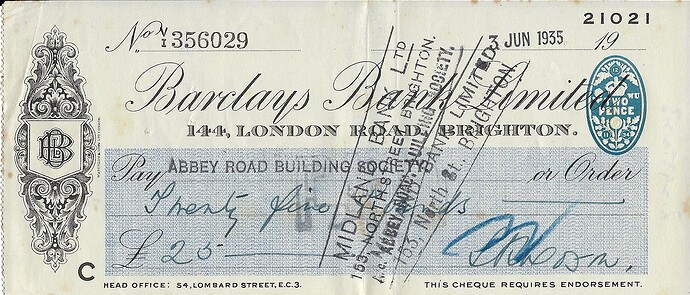 21021
No N/1 356029
3 JUN 1935 19
Barclays Bank Limited
144, LONDON ROAD, BRIGHTON.
TWO PENCE
Pay ABBEY ROAD BUILDING SOCIETY or Order
Twenty five Pounds
£ 25
MIDLAND BANK LTD
153, NORTH STREET, BRIGHTON.
A/c. ABBEY ROAD BUILDING SOCIETY.
MIDLAND BANK LIMITED
153, North St. BRIGHTON
C
HEAD OFFICE: 54, LOMBARD STREET, E.C.3.
THIS CHEQUE REQUIRES ENDORSEMENT.